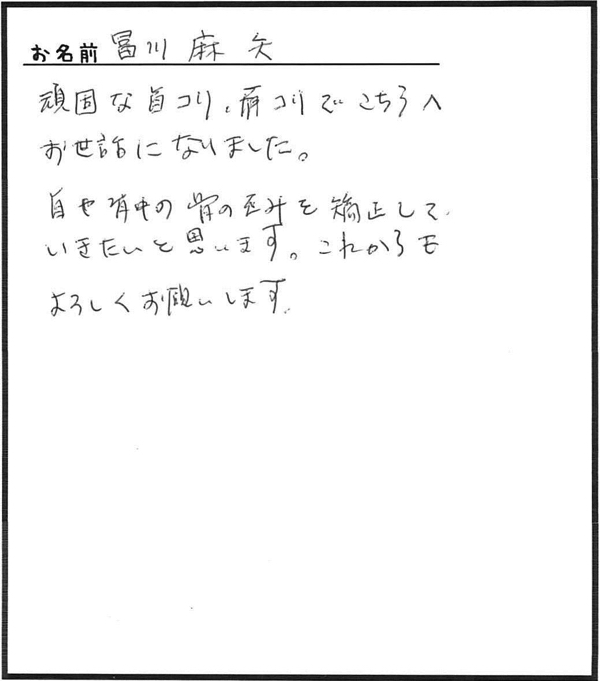 お名前 冨川 麻矢
頑固な首コリ、肩コリでこちらへ
お世話になりました。
首や背中の骨の歪みを矯正して
いきたいと思います。これからも
よろしくお願いします。